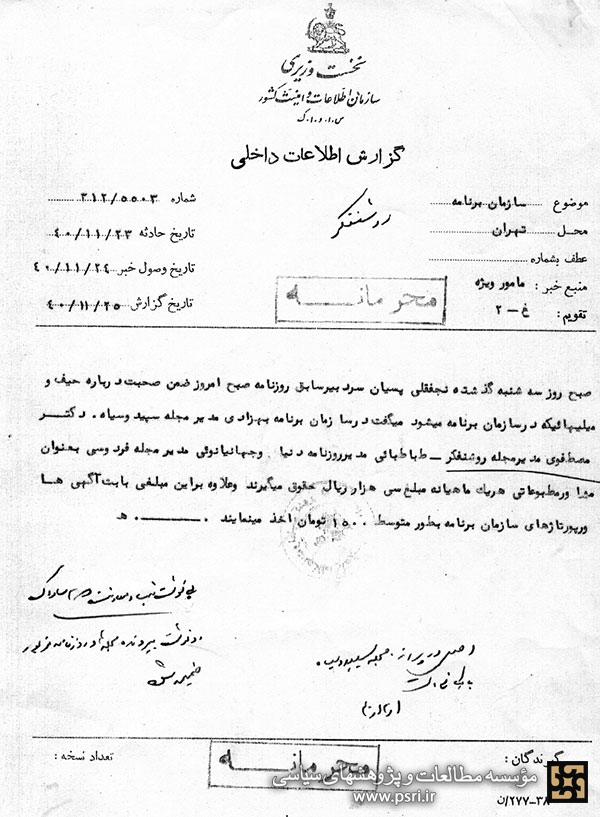 نخست وزیری
سازمان اطلاعات و امنیت کشور
س.ا.و.ا.ک
گزارش اطلاعات داخلی
موضوع سازمان برنامه
محل تهران
عطف بشماره
منبع خبر: مامور ویژه
تقویم: غ-۲
روشنفکر
شماره ۳۱۲/۵۵۰۳
تاریخ حادثه ۴۰/۱۱/۲۳
تاریخ وصول خبر ۴۰/۱۱/۲۴
تاریخ گزارش ۴۰/۱۱/۲۵
محرمانه
صبح روز سه شنبه گذشته نجفقلی پسیان سردبیرسابق روزنامه صبح امروز ضمن صحبت درباره حیف و
میلیهائیکه درسازمان برنامه میشود میگفت درسا زمان برنامه بهزادی مدیر مجله سپید وسیاه . دکتر
مصطفوی مدیرمجله روشنفکر – طباطبائی مدیرروزنامه دنیا . وجهانبانوئی مدیر مجله فردوسی بعنوان
مشا ورمطبوعاتی هریک ماهیانه مبلغ سی هزار ریال حقوق میگیرند وعلاوه براین مبلغی بابت آگهی ها
ورپورتاژهای سازمان برنامه بطور متوسط ۱۵۰۰ تومان اخذ مینمایند . ــ هـ
اصل در پرونده مجله سپید و سیاه
گیرندگان :
تعداد نسخه :
محرمانه
مؤسسه مطالعات و پژوهشهای سیاسی
www.psri.ir
۳۸-۲۷۷/ن